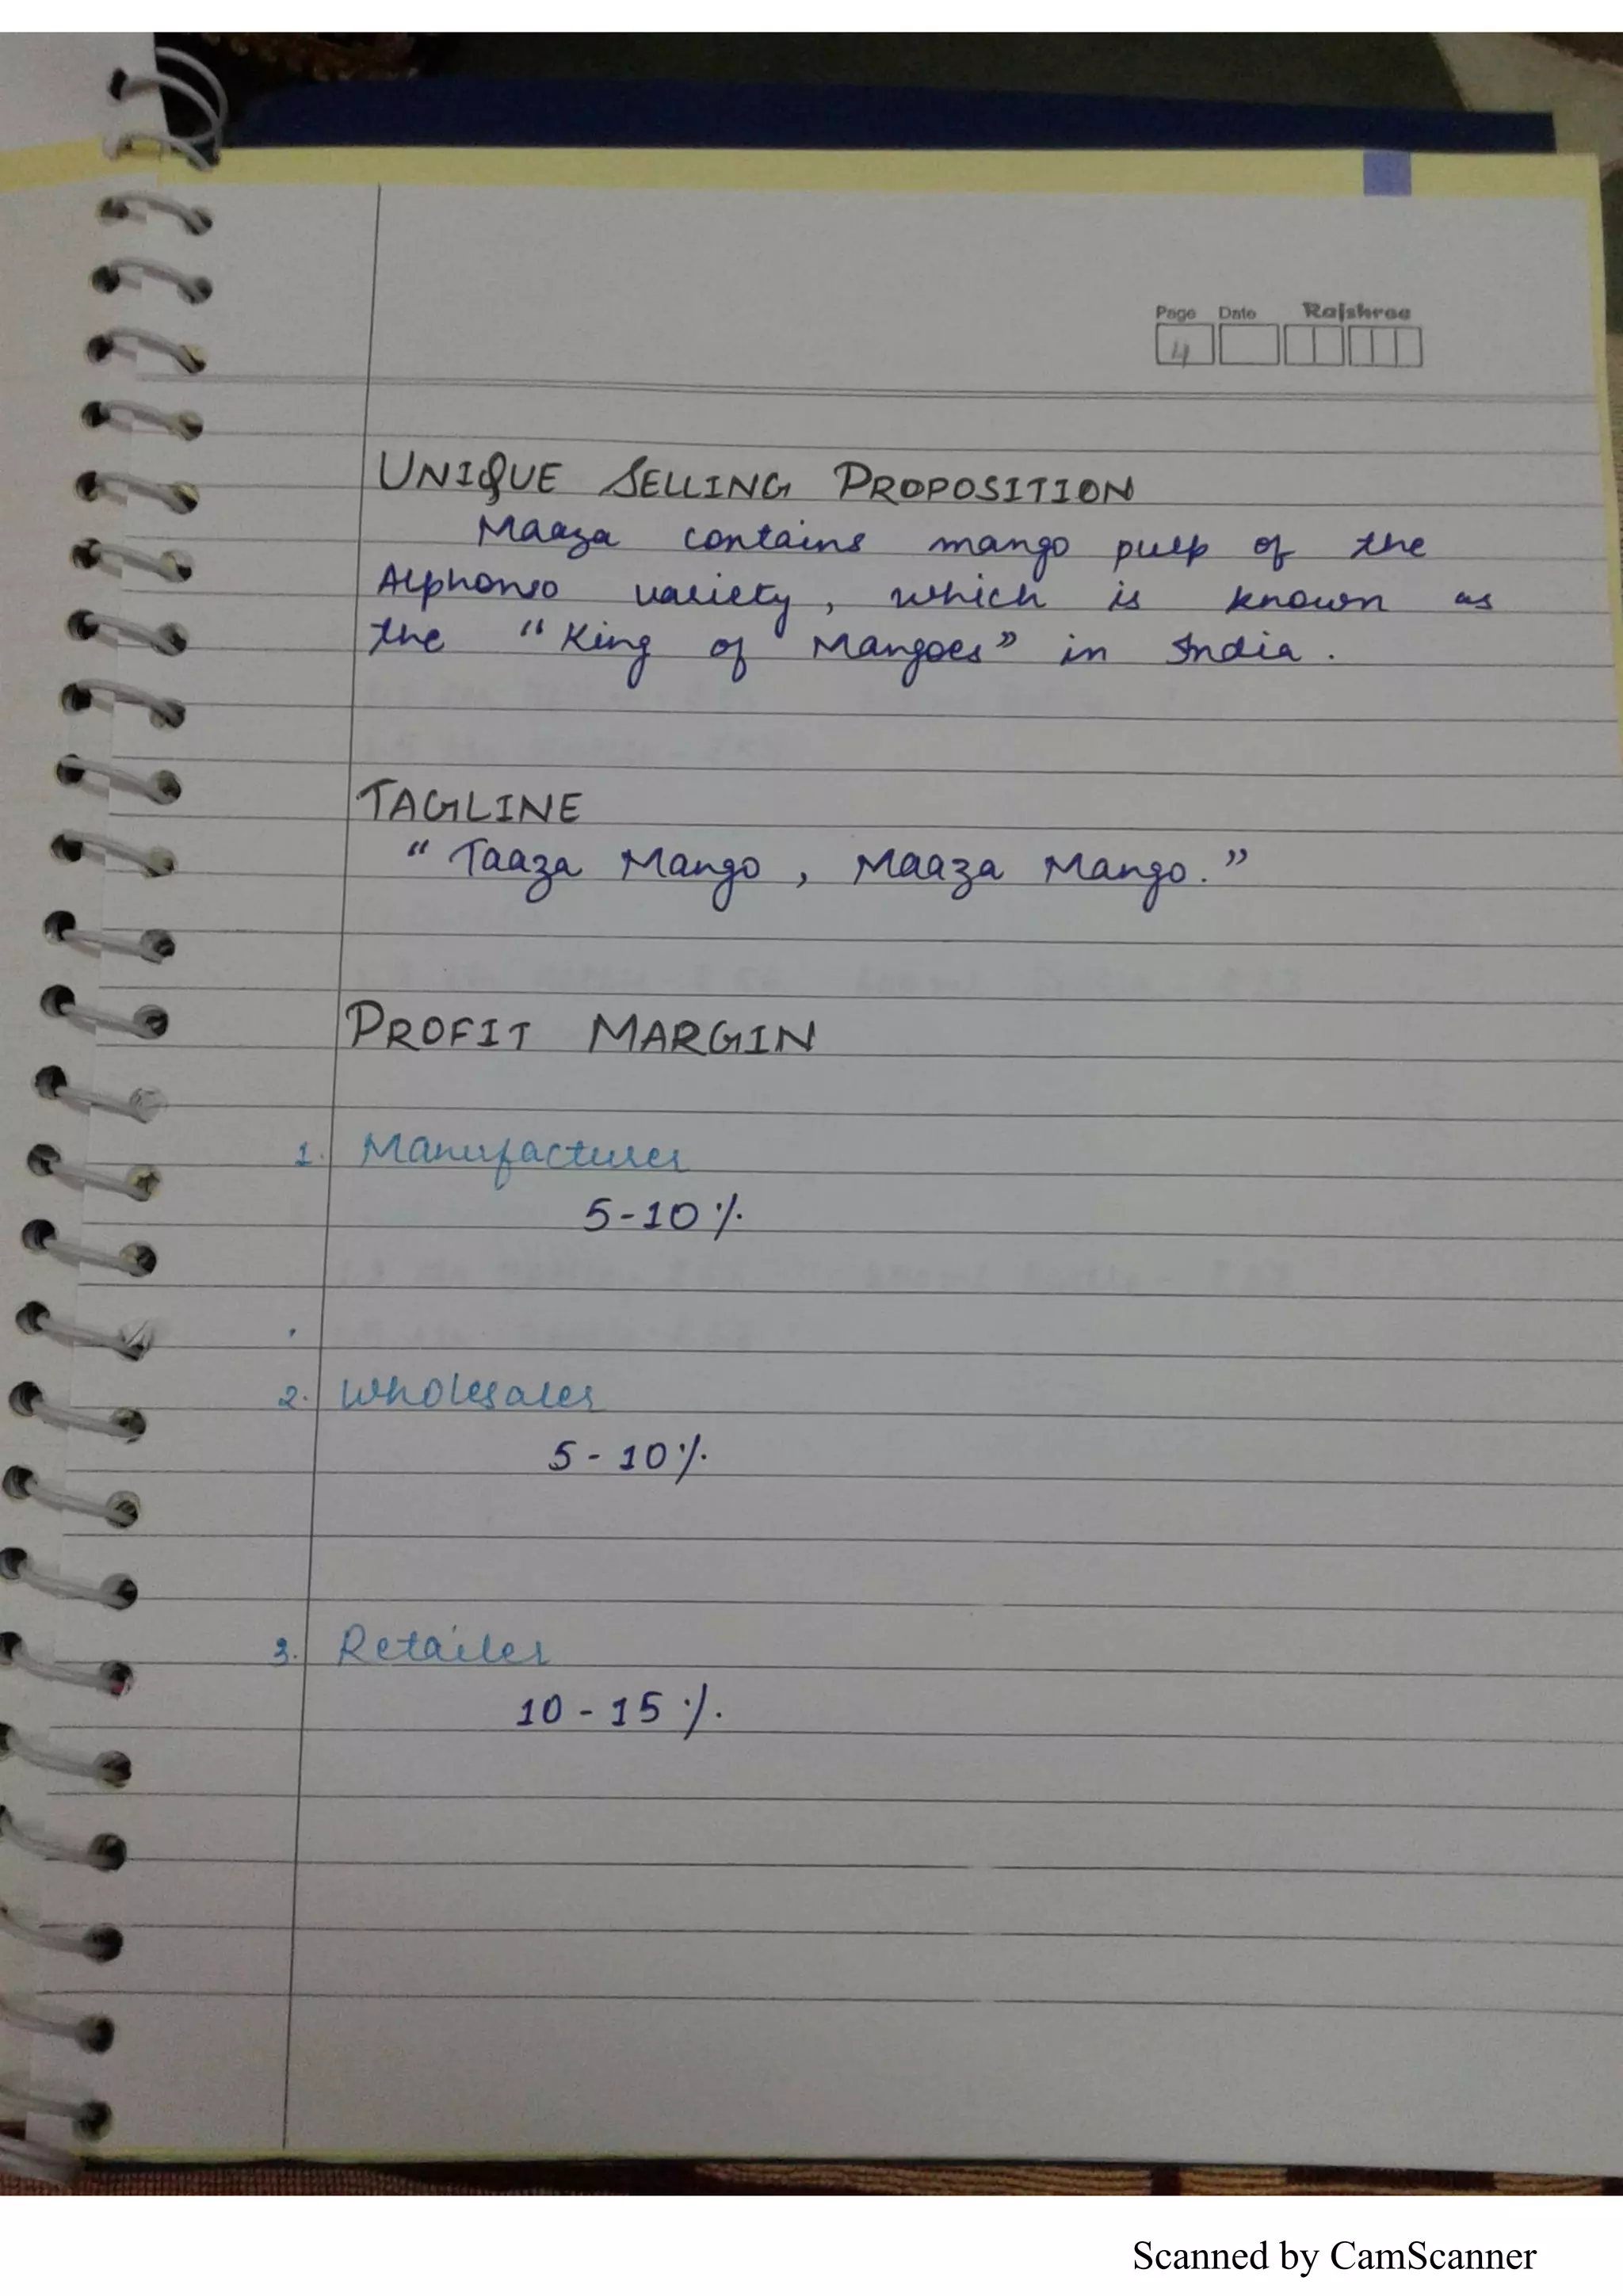 Page Date Rajshree
4
UNIQUE SELLING PROPOSITION
Maaza contains mango pulp of the
Alphonso variety, which is known as
the "King of Mangoes" in India.
TAGLINE
"Taaza Mango, Maaza Mango."
PROFIT MARGIN
1. Manufacturer
5-10%
2. Wholesaler
5-10%
3. Retailer
10-15%
Scanned by CamScanner